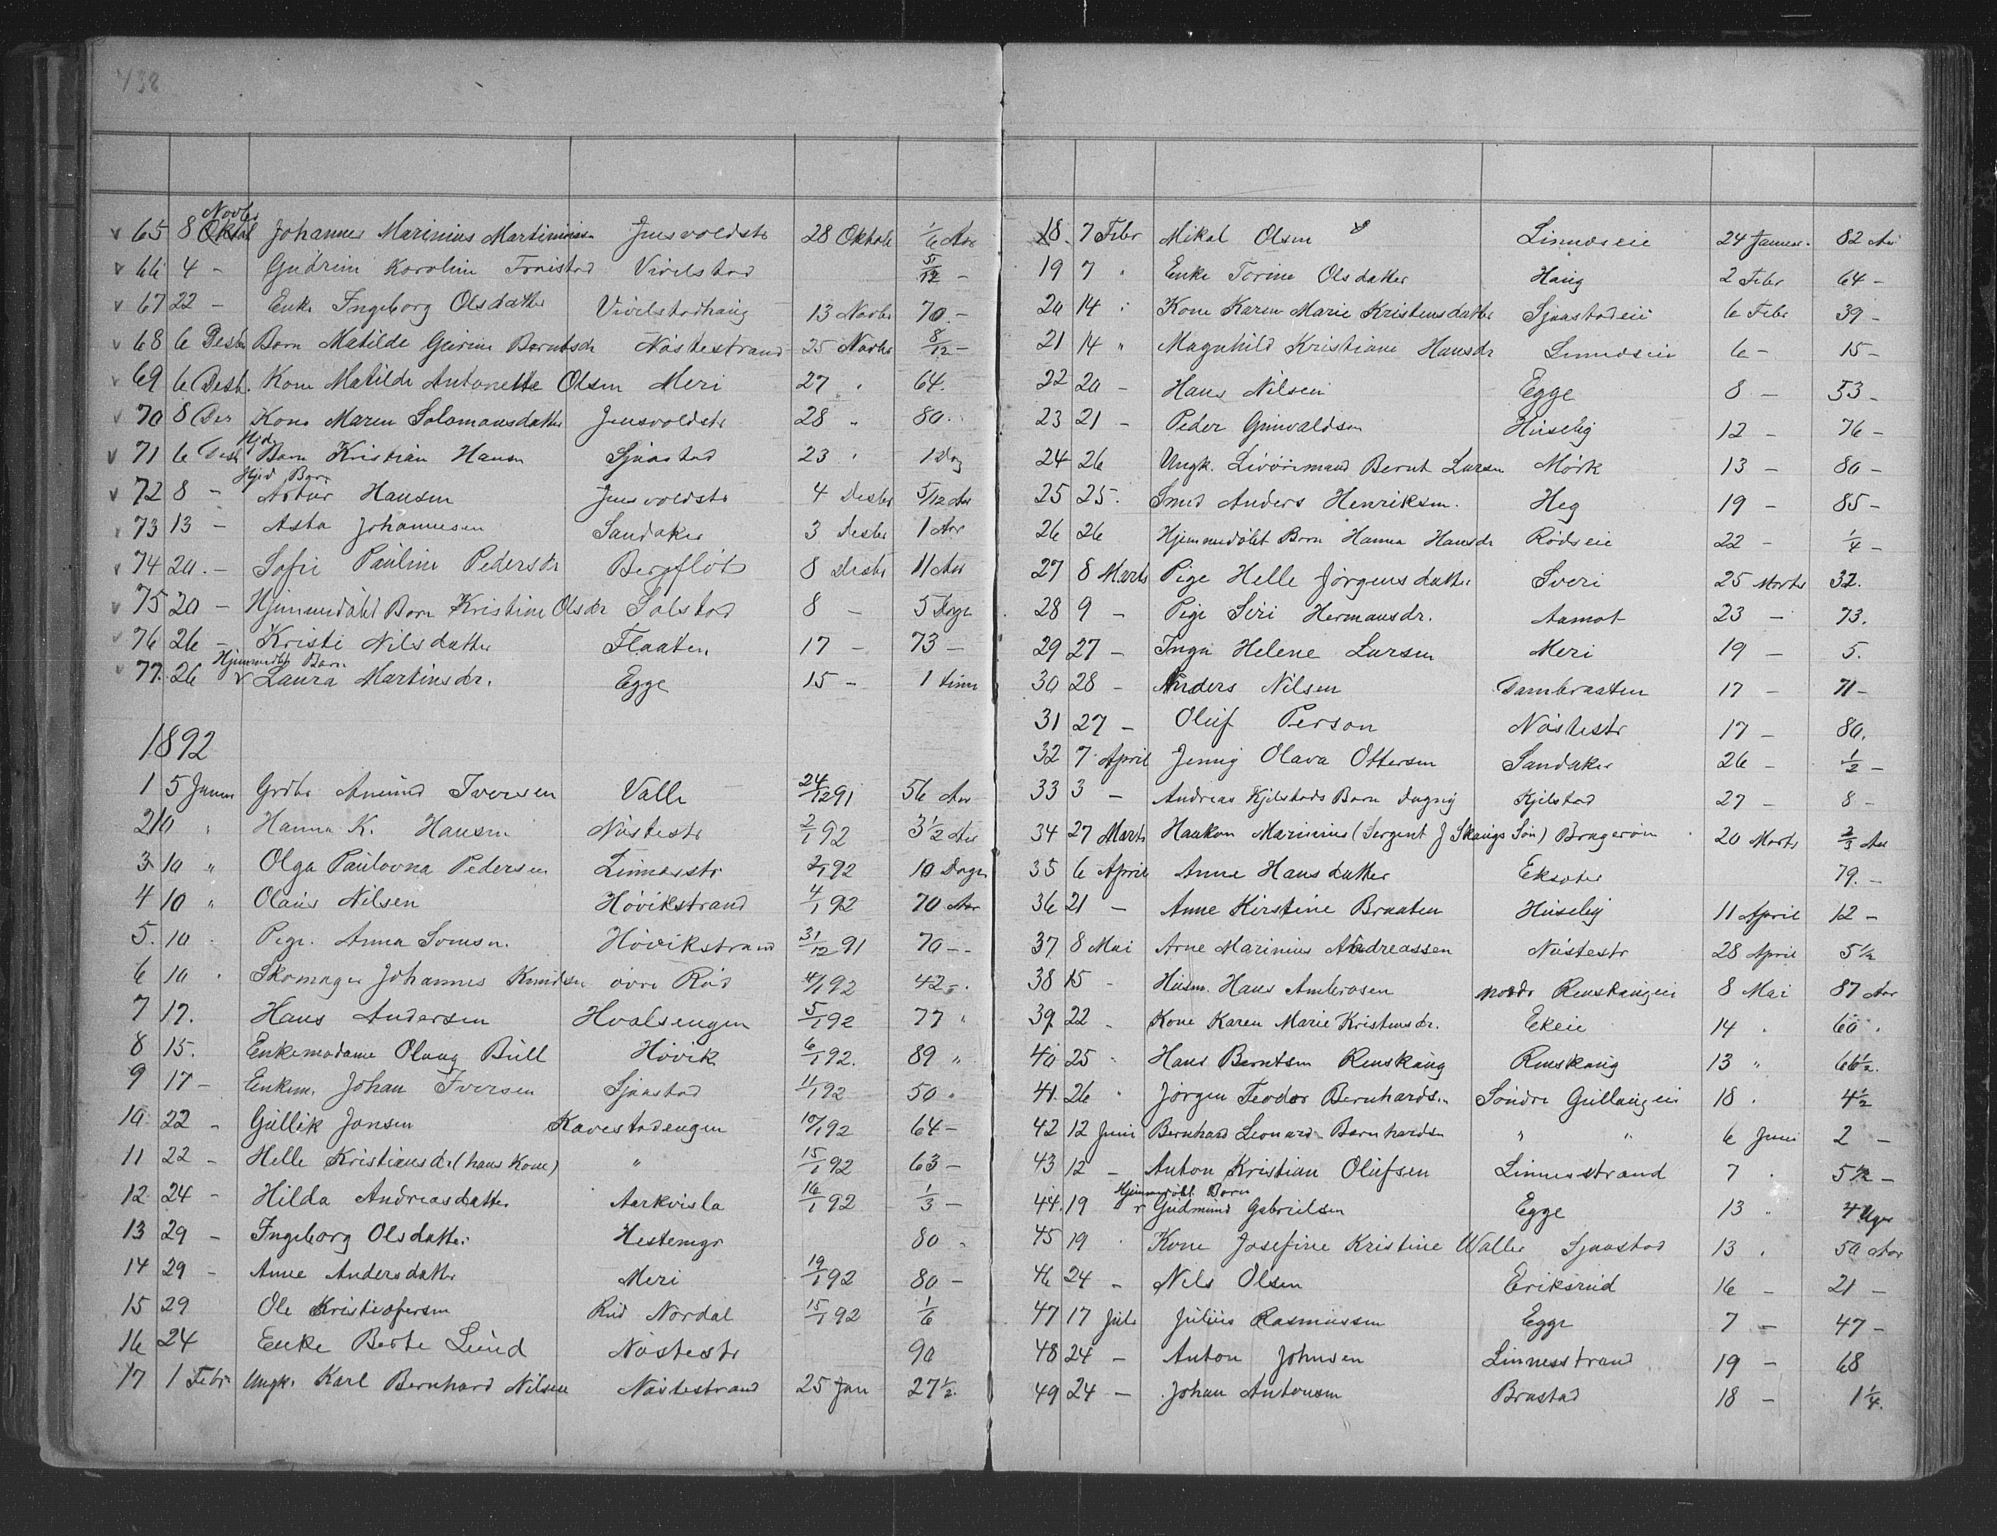 438
Novbr
65 8 Oktob Johannes Marinius Martiniusen Jensvoldstr 28 Oktob 1/6 Aar
66 4 - Gudrun Karoline Fonistad Vivelstad 5/12 -
67 22 - Enke Ingeborg Olsdatter Vivelstadhaug 13 Novbr 70 -
68 6 Desbr Barn Matilde Gurine Berntsdr Nöstestrand 25 Novbr 8/12 -
69 6 Desb. Kone Matilde Antonette Olsen Meri 27 " 64.
70 8 Des Kone Maren Salamonsdatter Jensvoldstr 28 " 80.
Hjd
71 6 Desb Barn Kristian Hansen Sjaastad 23 " 1 Dag
Hjed Barn
72 8 - Artur Hansen Jensvoldstr 4 Desbr 5/12 Aar
73 13 - Asta Johannesen Sandaker 3 Desbr 1 Aar
74 20. - Sofie Pauline Pedersdr Bergflöt 8 Desbr 11 Aar
75 20 - Hjemmedöbt Barn Kristine Olsdr Solstad 8 - 5 Dage
76 26 - Kristi Nilsdatter Flaaten 17 - 73 -
Hjemmedbt Barn
77. 26 Laura Martinsdr. Egge 15 - 1 time
1892
1 5 Januar Grdbr Amund Iversen Valle 24/12 91 56 Aar
2 10 " Hanna K. Hansen Nöstestr 2/1 92 3 1/2 Aar
3 10 " Olga Paulovna Pedersen Linnesstr 2/1 92 10 Dage
4 10 " Olaus Nilsen Hövikstrand 4/1 92 70 Aar
5. 10 Pige. Anna Tomsn. Hövikstrand 31/12 91 70 -
6 10 " Skomager Johannes Knudsen övre Röd 4/1 92 42 -
7 17. Hans Andersen Hvalsengen 5/1 92 77 "
8 15. Enkemadame Olaug Bull Hövik 6/1 92. 89 "
9 17 - Enkem. Johan Iversen Sjaastad 11/1 92 50 "
10. 22 - Gullik Jonsen Kavestadengen 10/1 92 64 -
11 22 - Helle Kristiansdr (hans Kone) " 15/1 92 63 -
12. 24 - Hilda Andreasdatter Aarkvisla 16/1 92 1/3 -
13 29 - Ingeborg Olsdatter Hestengr 80 -
14 29 - Anne Andersdatter Meri 19/1 92 80 -
15 29 Ole Kristiofersen Rud Nordal 15/1 92 1/6
16 24 Enke Berte Lund Nöstestr 90
17 1 Febr Ungk. Karl Bernhard Nilsen Nöstestrand 25 Jan 27 1/2.
18. 7 Febr Mikal Olsen Linneseie 24 Januar. 82 Aar
19 7 " Enke Torine Olsdatter Haug 2 Febr 64 -
20 14 " Kone Karen Marie Kristensdatter Sjaastadeie 6 Febr 39 -
21 14 " Magnhild Kristiane Hansdr Linneseie 6 - 15 -
22 20 - Hans Nilsen Egge 8 - 53 -
23 21 - Peder Gunvaldsen Huseby 12 - 76 -
24 26 Ungk. Livöremand Bernt Larsen Mörk 13 - 80 -
25 25. Smed Anders Henriksen. Heg 19 - 85 -
26 26 Hjemmedöbt Barn Hanna Hansdr Rödseie 22 - 1/4 -
27 8 Marts Pige Helle Jörgensdatter Sveri 25 Marts 32.
28 9 - Pige Siri Hermansdr. Aamot 23 - 73.
29 27 - Inga Helene Larsen Meri 19 - 5.
30 28 - Anders Nilsen Dambraaten 17 - 71 -
31 27 - Oluf Person Nöstestr 17 - 80.
32 7 April Jenny Olava Ottersen Sandaker 26 - 1/2 -
33 3 - Andreas Kjelstads Barn Dagny Kjelstad 27 - 8 -
34 27 Marts Haakon Marinius (Sergent J Skaugs Sön) Brageröen 20 Marts 2/3 Aar
35 6 April Anne Hansdatter Eksater 79. -
36 21 - Anne Kirstine Braaten Huseby 11 April 12 -
37. 8 Mai Arne Marinius Andreassen Nöstestr 28 April 5 1/2
38 15 - Husm. Hans Ambrosen nordr Renskaugeie 8 Mai 87 Aar
39. 22 Kone Karen Marie Kristensdr. Ekeie 14 " 60
40 25 " Hans Berntsen Renskaug Renskaug 13 " 66 1/2.
41. 26 " Jörgen Teodor Bernhardsn Söndre Gullaugeie 18 " 4 1/2
42 12 Juni Bernhard Leonard Bernhardsn " " 6 Juni 2 -
43 12 - Anton Kristian Olufsen Linnesstrand 7 5 1/2 -
Hjemmedöbt Barn
44. 19 Gudmund Gabrielsen Egge 13 " 4 Uger
45 19 " Kone Josefine Kristine Walle Sjaastad 13 " 50 Aar
46 24 - Nils Olsen Eriksrud 16 - 21 -
47 17 Juli Julius Rasmussen Egge 7 - 47 -
48 24 - Anton Johnsen Linnesstrand 19 - 68
49 24 - Johan Antonsen Brastad 18 - 1 1/4.